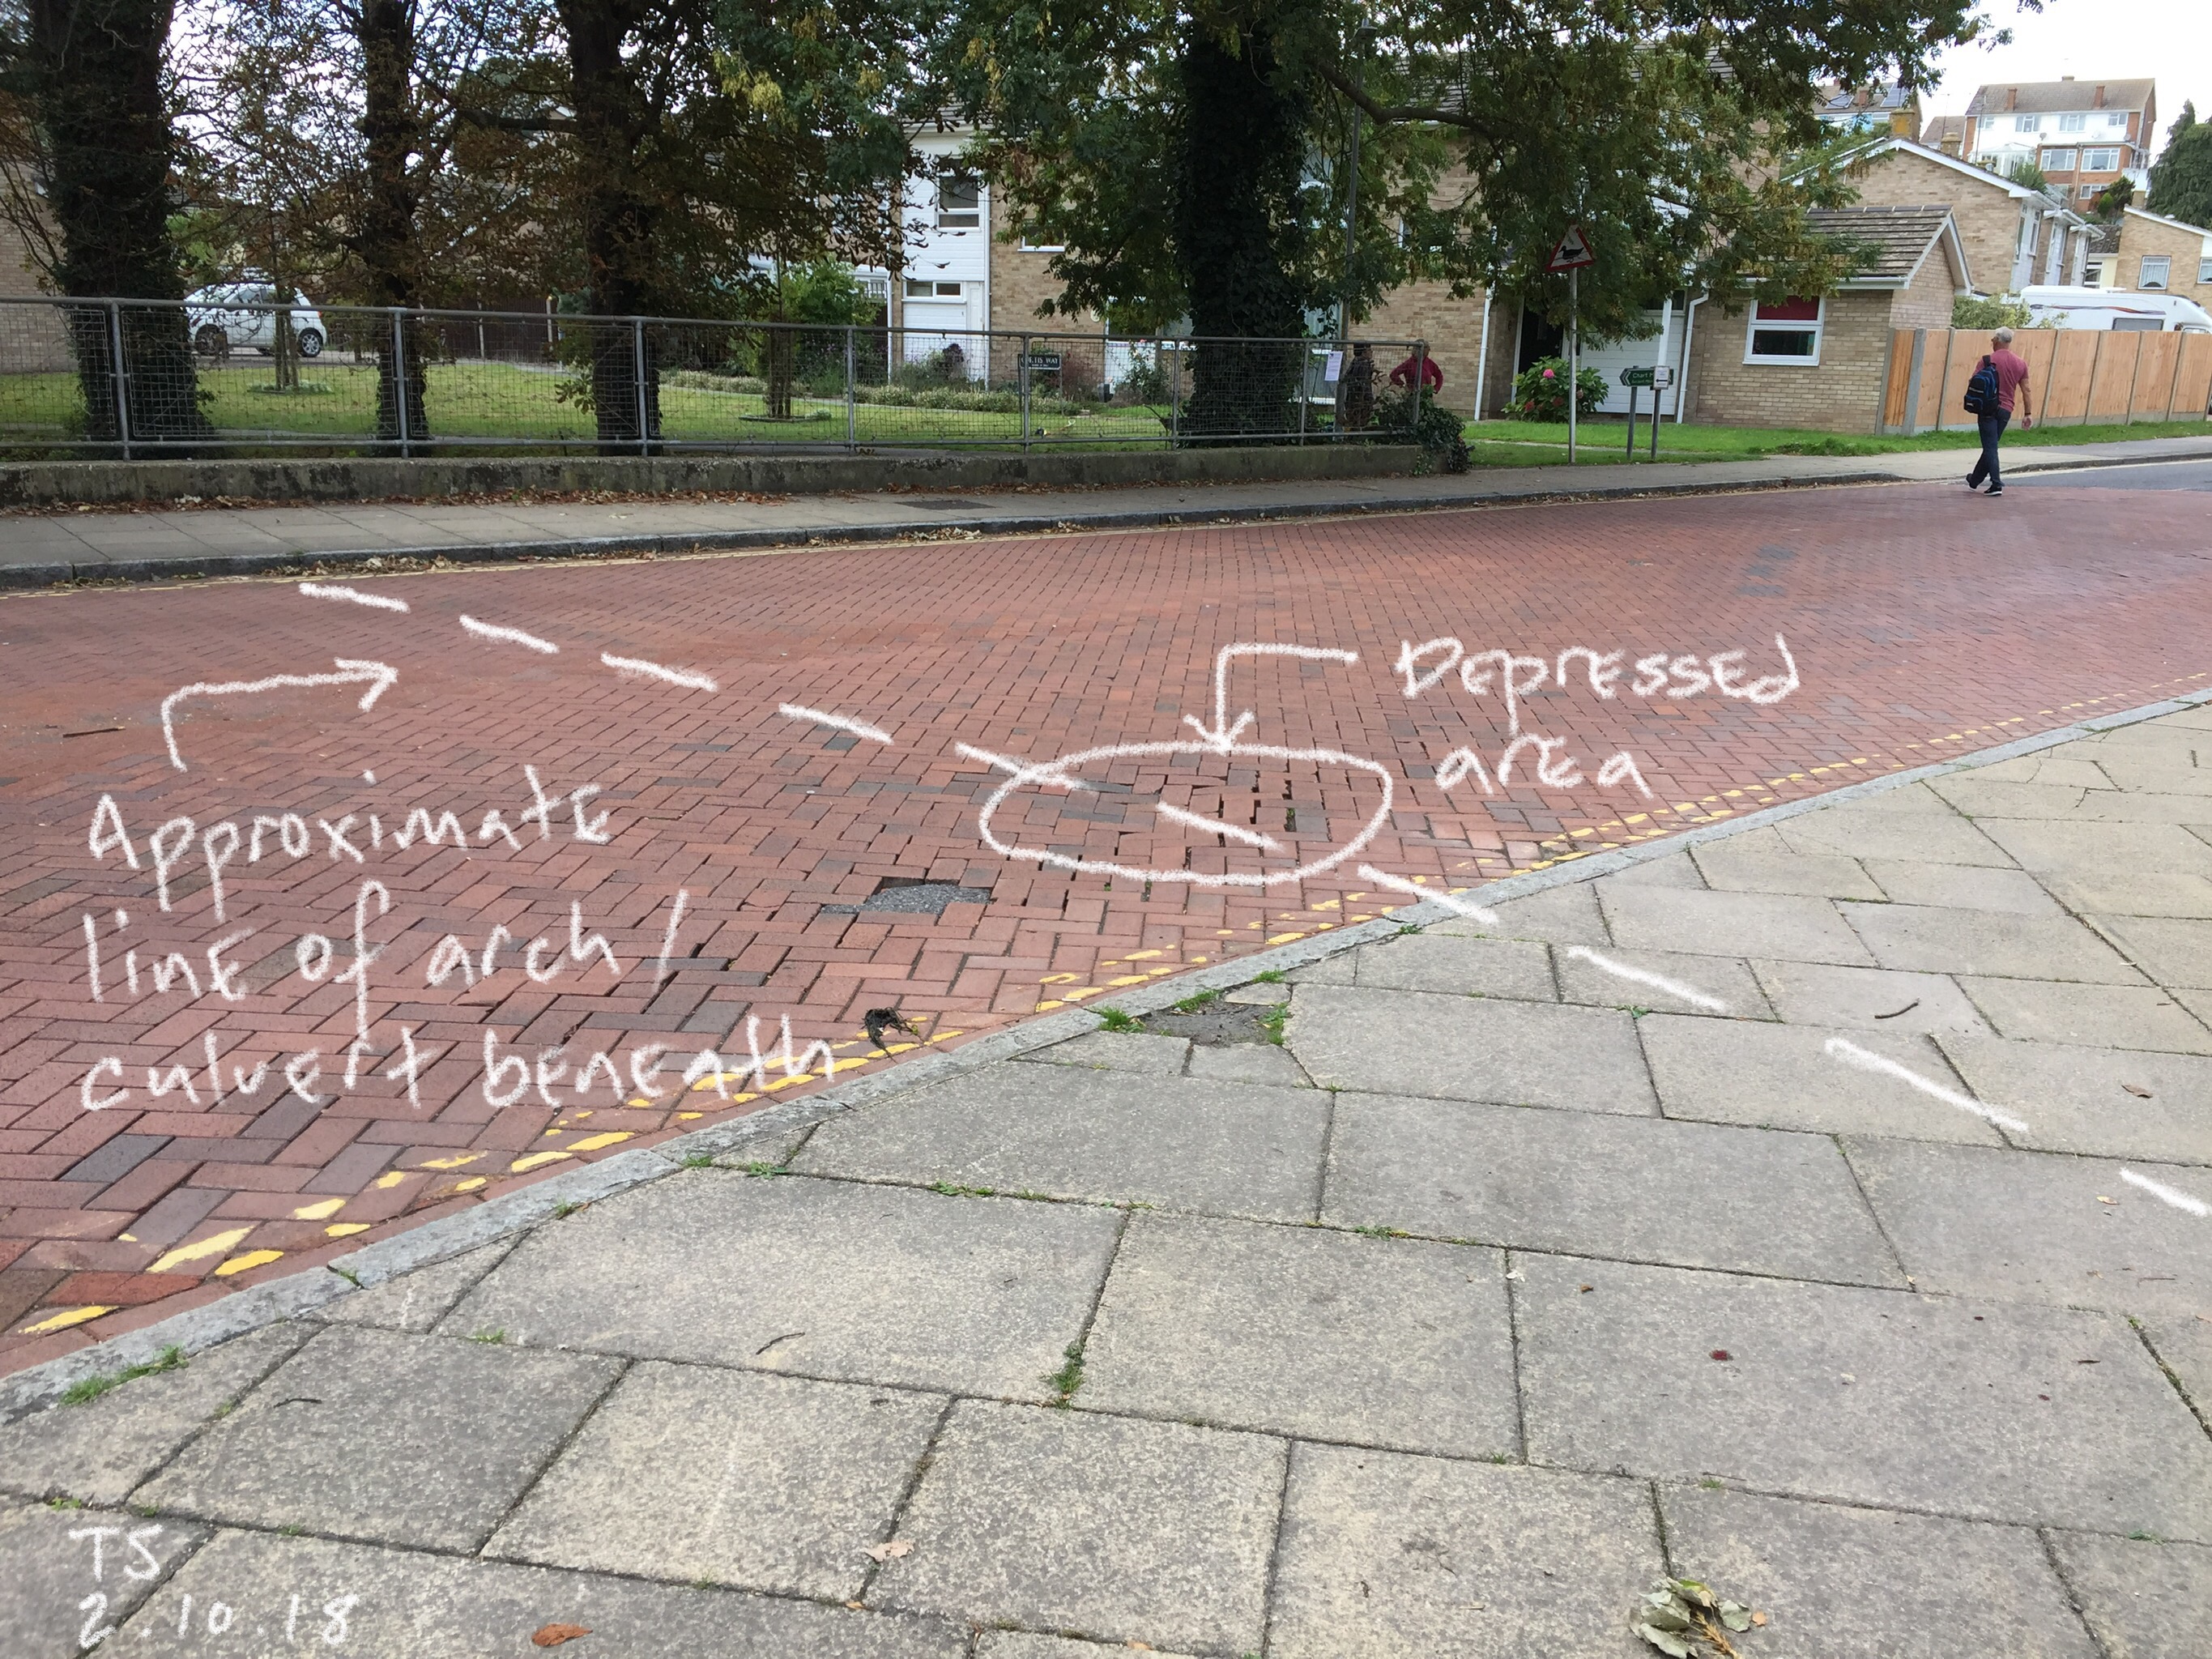 Depressed
area
Approximate
line of arch /
culvert beneath
TS
2.10.18